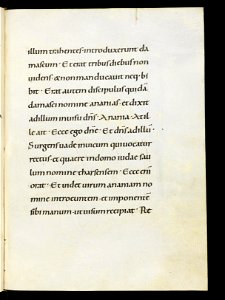 illum trahentes · introduxerunt da
mascum · Et erat tribus diebus non
uidens · & non manducauit neq; bi
bit · Erat autem discipulus quidā
damasci nomine ananias · et dixit
ad illum in uisu dn̄s · Anania · At il
le ait · Ecce ego dn̄e · Et dn̄s ad illū ·
Surgens uade in uicum qui uocatur
rectus · et quaere in domo iudae sau
lum nomine tharsensem · Ecce eni
orat · Et uidet uirum ananiam no
mine introeuntem · et imponentē
sibi manum · ut uisum recipiat · Re